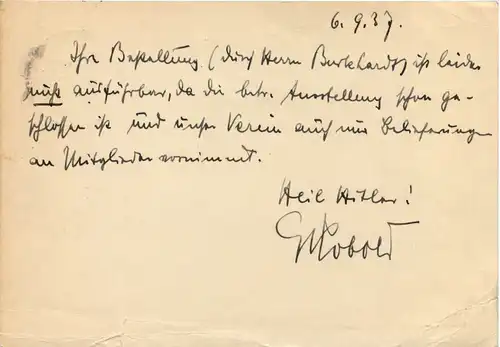 6.9.37.
Ihre Bestellung (durch Herrn Burkhardt) ist leider
nicht ausführbar, da die betr. Ausstellung schon ge-
schlossen ist und unser Verein auch nur Belieferungen
an Mitglieder vornimmt.
Heil Hitler!
Kobold